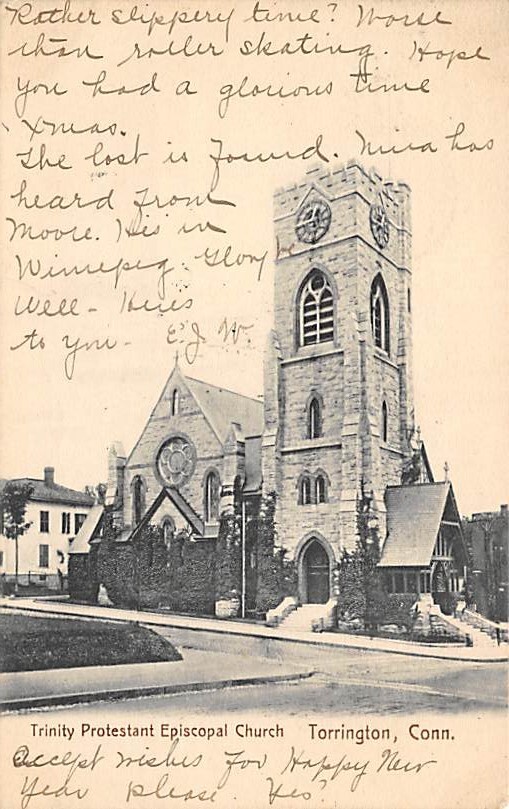 Rather slippery time? Worse
than roller skating. Hope
you had a glorious time
Xmas.
The lost is Found. Nina has
heard from
Moore. His in
Winnepeg. Glory be
Well - Heres
to you - E.J. W.
Trinity Protestant Episcopal Church Torrington, Conn.
Accept wishes for Happy New
Year please. Yes?